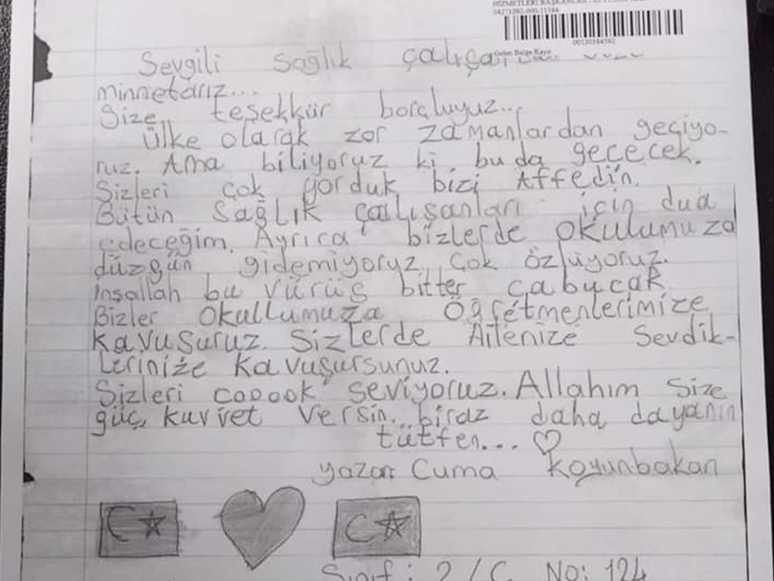 HİZMETLERİ BAŞKANLIĞI
00130184582
Gelen Belge Kayıt
Sevgili Sağlık
minnetarız...
Size teşekkür borçluyuz...
Ülke olarak zor zamanlardan geçiyo-
ruz. Ama biliyoruz ki bu da geçecek.
Sizleri çok yorduk bizi Affedin.
Bütün Sağlık çalışanları için dua
edeceğim. Ayrıca bizlerde okulumuza
düzgün gidemiyoruz. çok özlüyoruz.
inşallah bu vürüs bitter çabucak
Bizler okullumuza Öğretmenlerimize
kavuşuruz. Sizlerde Ailenize Sevdik-
lerinize kavuşursunuz.
Sizleri çooook seviyoruz. Allahım Size
güç, kuvvet versin... biraz daha dayanın
lütfen... ♡
yazar Cuma Koyunbakan
Sınıf: 2/C No: 124